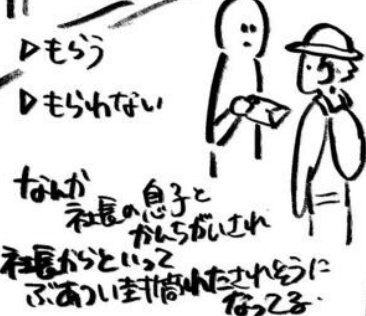 ▷もらう
▷もらわない
なんか
社長の息子と
かんちがいされ
社長からといって
ぶあつい封筒わたされそうに
なってる.